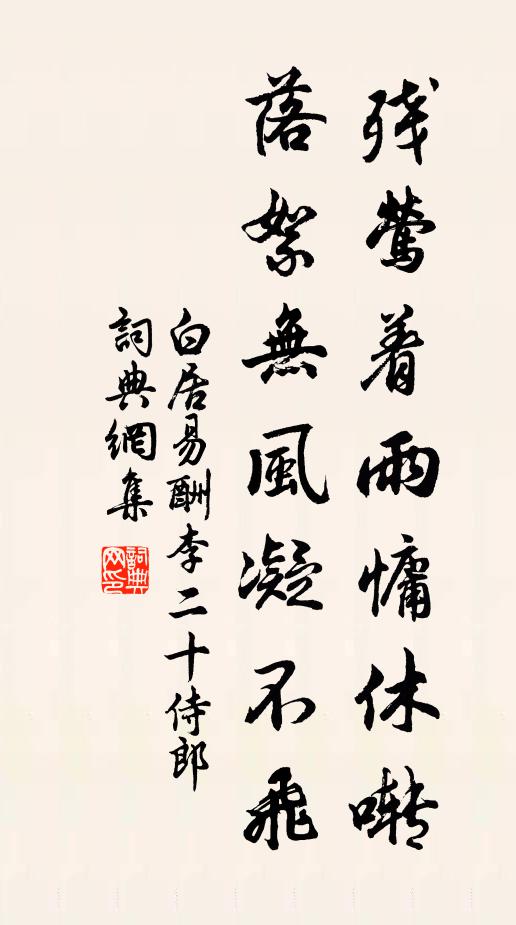 残莺着雨慵休啭
落絮無風凝不飛
白居易酬李二十侍郎
詞典網集
詞典网印